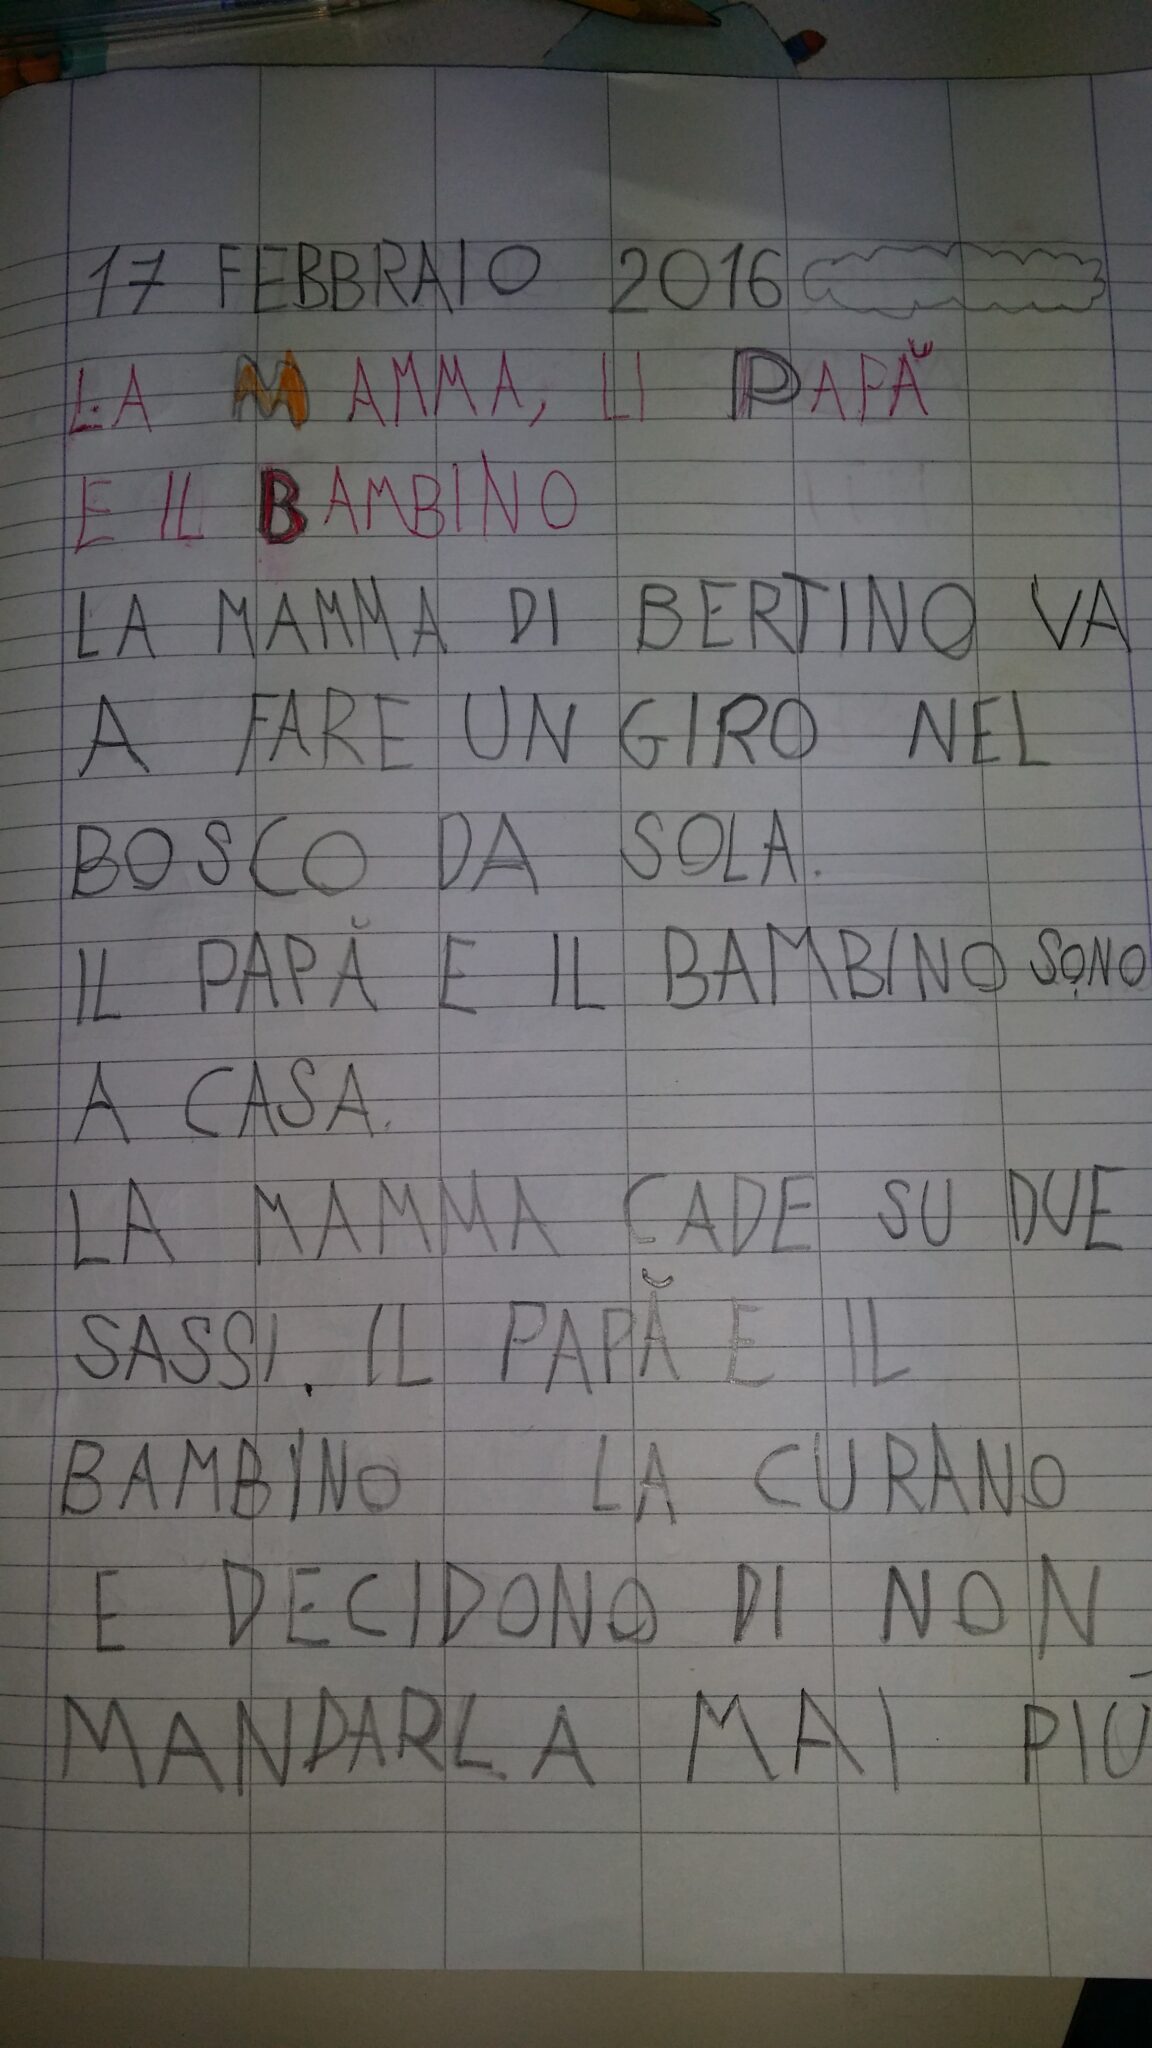 17 FEBBRAIO 2016
LA MAMMA, LI PAPĂ
E IL BAMBINO
LA MAMMA DI BERTINO VA
A FARE UN GIRO NEL
BOSCO DA SOLA.
IL PAPĂ E IL BAMBINO SONO
A CASA.
LA MAMMA CADE SU DUE
SASSI. IL PAPĂ E IL
BAMBINO LA CURANO
E DECIDONO DI NON
MANDARLA MAI PIÚ